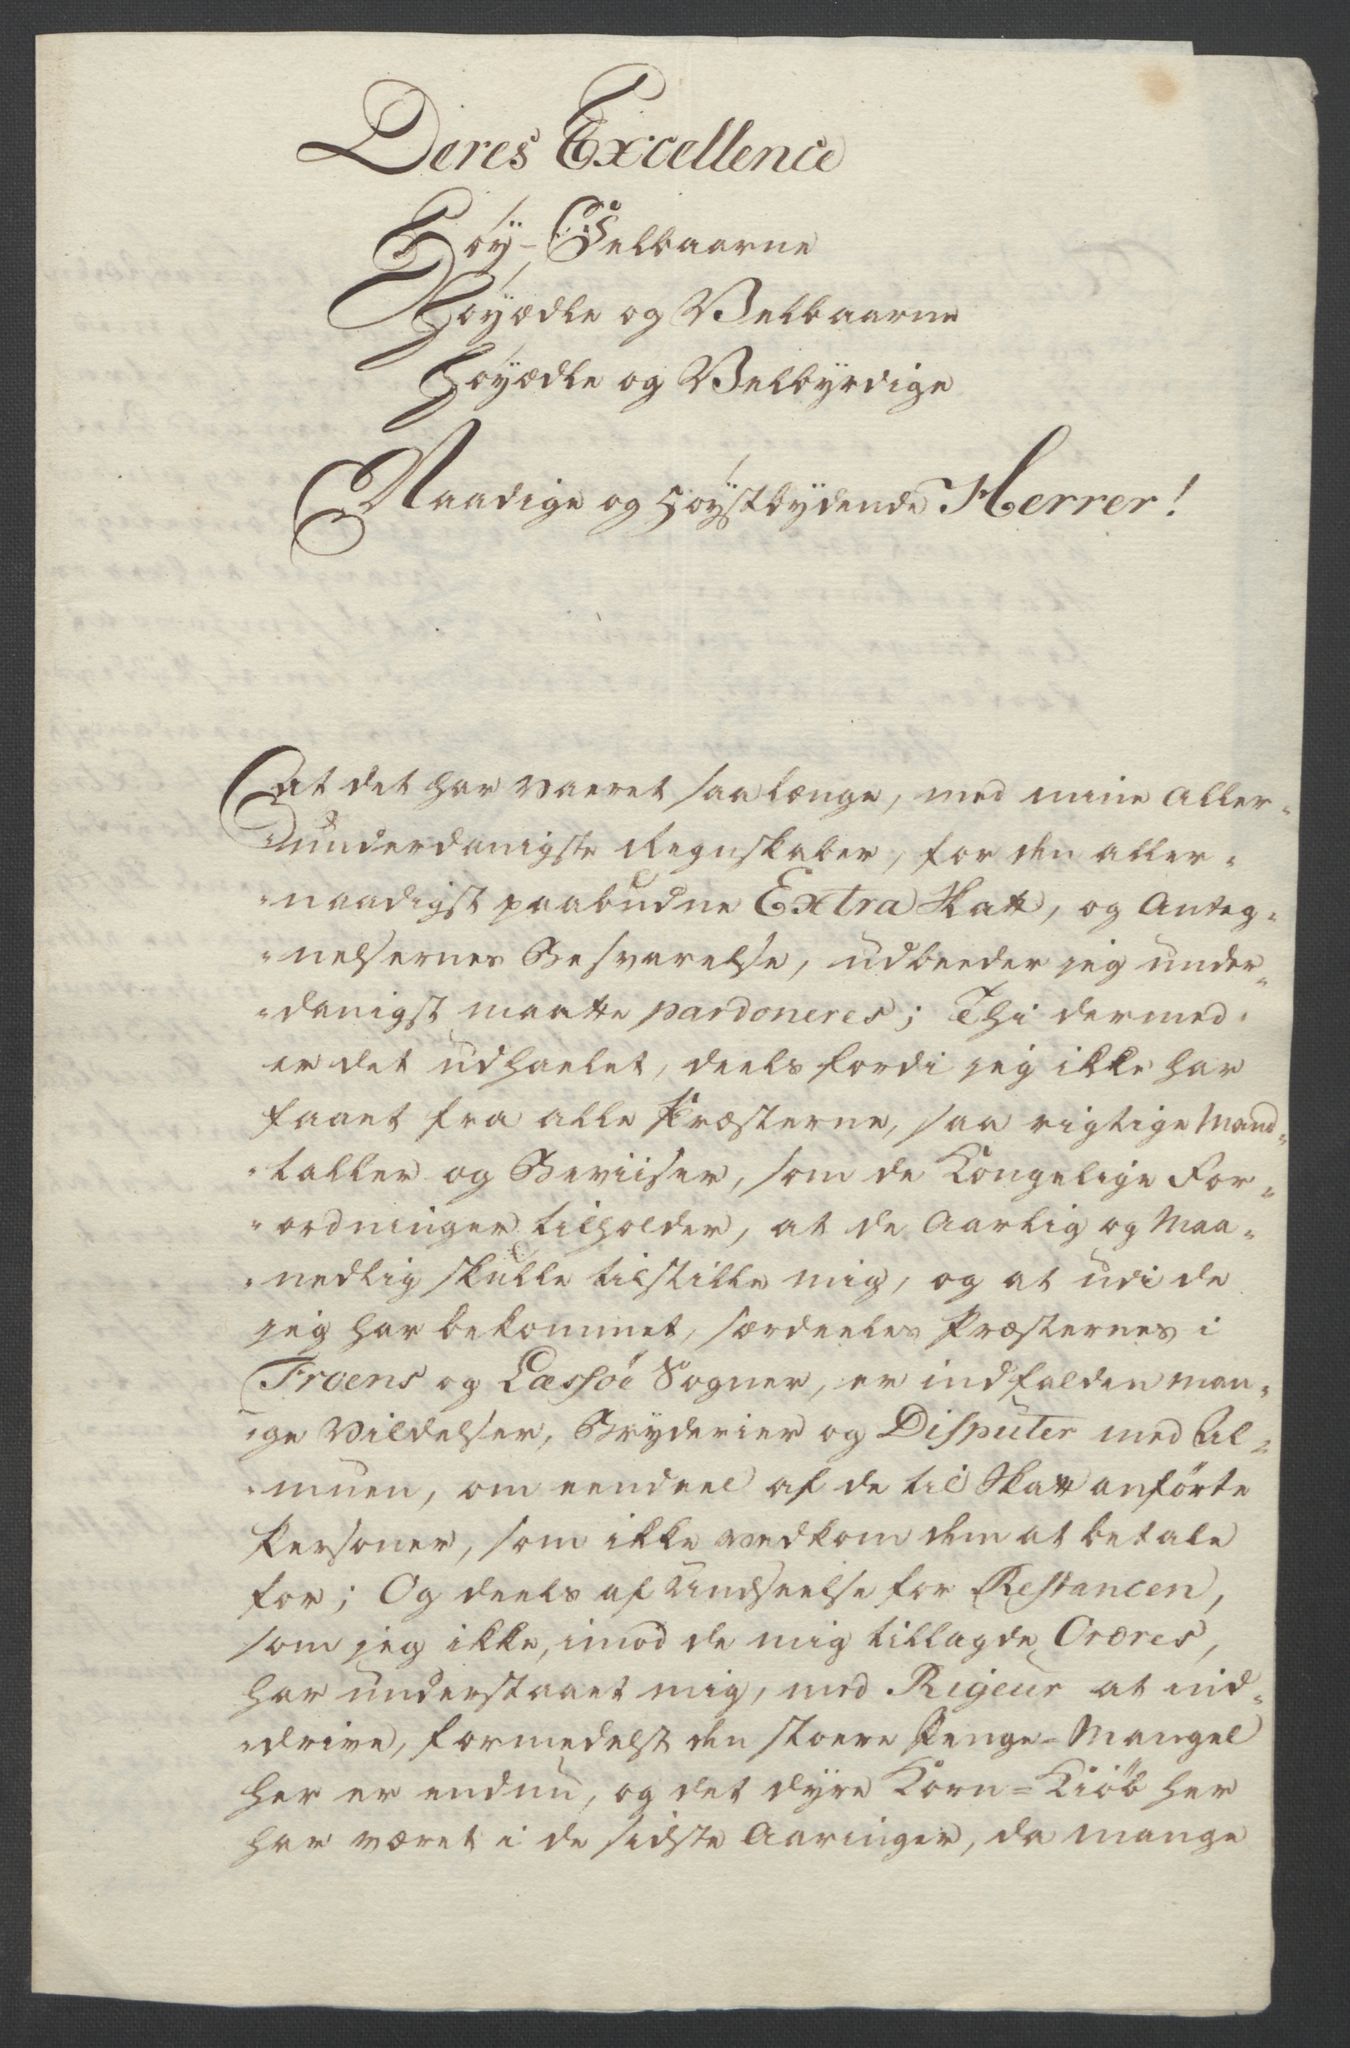 Deres Excellence
Høy-Velbaarne
Høyædle og Velbaarne
Høyædle og Velbyrdige
Naadige og Høystbydende Herrer!
at det har vaeret saa længe, med mine aller-
underdanigste Regnskaber, for den aller-
naadigst paabudne Extra Skatt, og Anteg-
nelsernes Besvarelse, udbeeder jeg under-
danigst maatte pardoneres; Thi dermed
er det udhaelet, deels fordi jeg ikke har
faaet fra alle Præsterne, saa rigtige Mand-
taller og Beviiser, som de Kongelige For-
ordninger tilholder, at de Aarlig og Maa-
nedlig skulle tilstille mig, og at udi de
jeg har bekommet, særdeeles Præsternes i
Froens og Læssøe Sogner, er indfalden man-
ge Vildelser, Bryderier og Disputer med Al-
muen, om eendeel af de til Skatt anførte
Personer, som ikke vedkom dem at betale
for; Og deels af Undseelse for Restancen,
som jeg ikke, imod de mig tillagde Ordres,
har understaaet mig, med Rigeur at ind-
drive, formedelst den stoere Penge-Mangel
her er endnu, og det dyre Korn=Kiöb her
har været i de sidste Aaringer, da mange